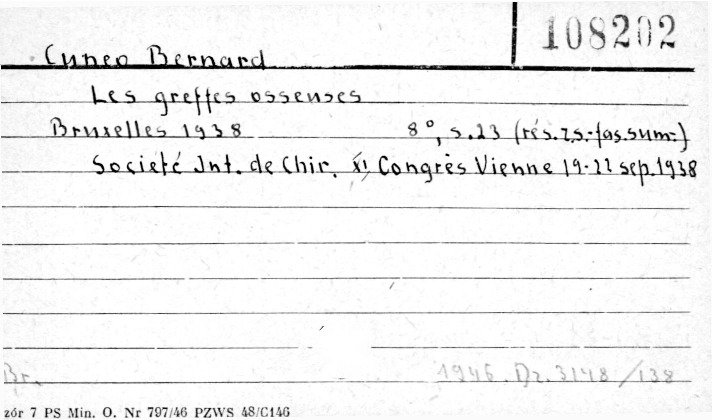 108202
Cuneo Bernard
Les greffes osseuses
Bruxelles 1938 8°, s.23 (rés.zs.-fas.sum.)
Societé Int. de Chir. XI Congrès Vienne 19-22 sep. 1938
Br. 1946. Dz. 3148/138
zór 7 PS Min. O. Nr 797/46 PZWS 48/C146